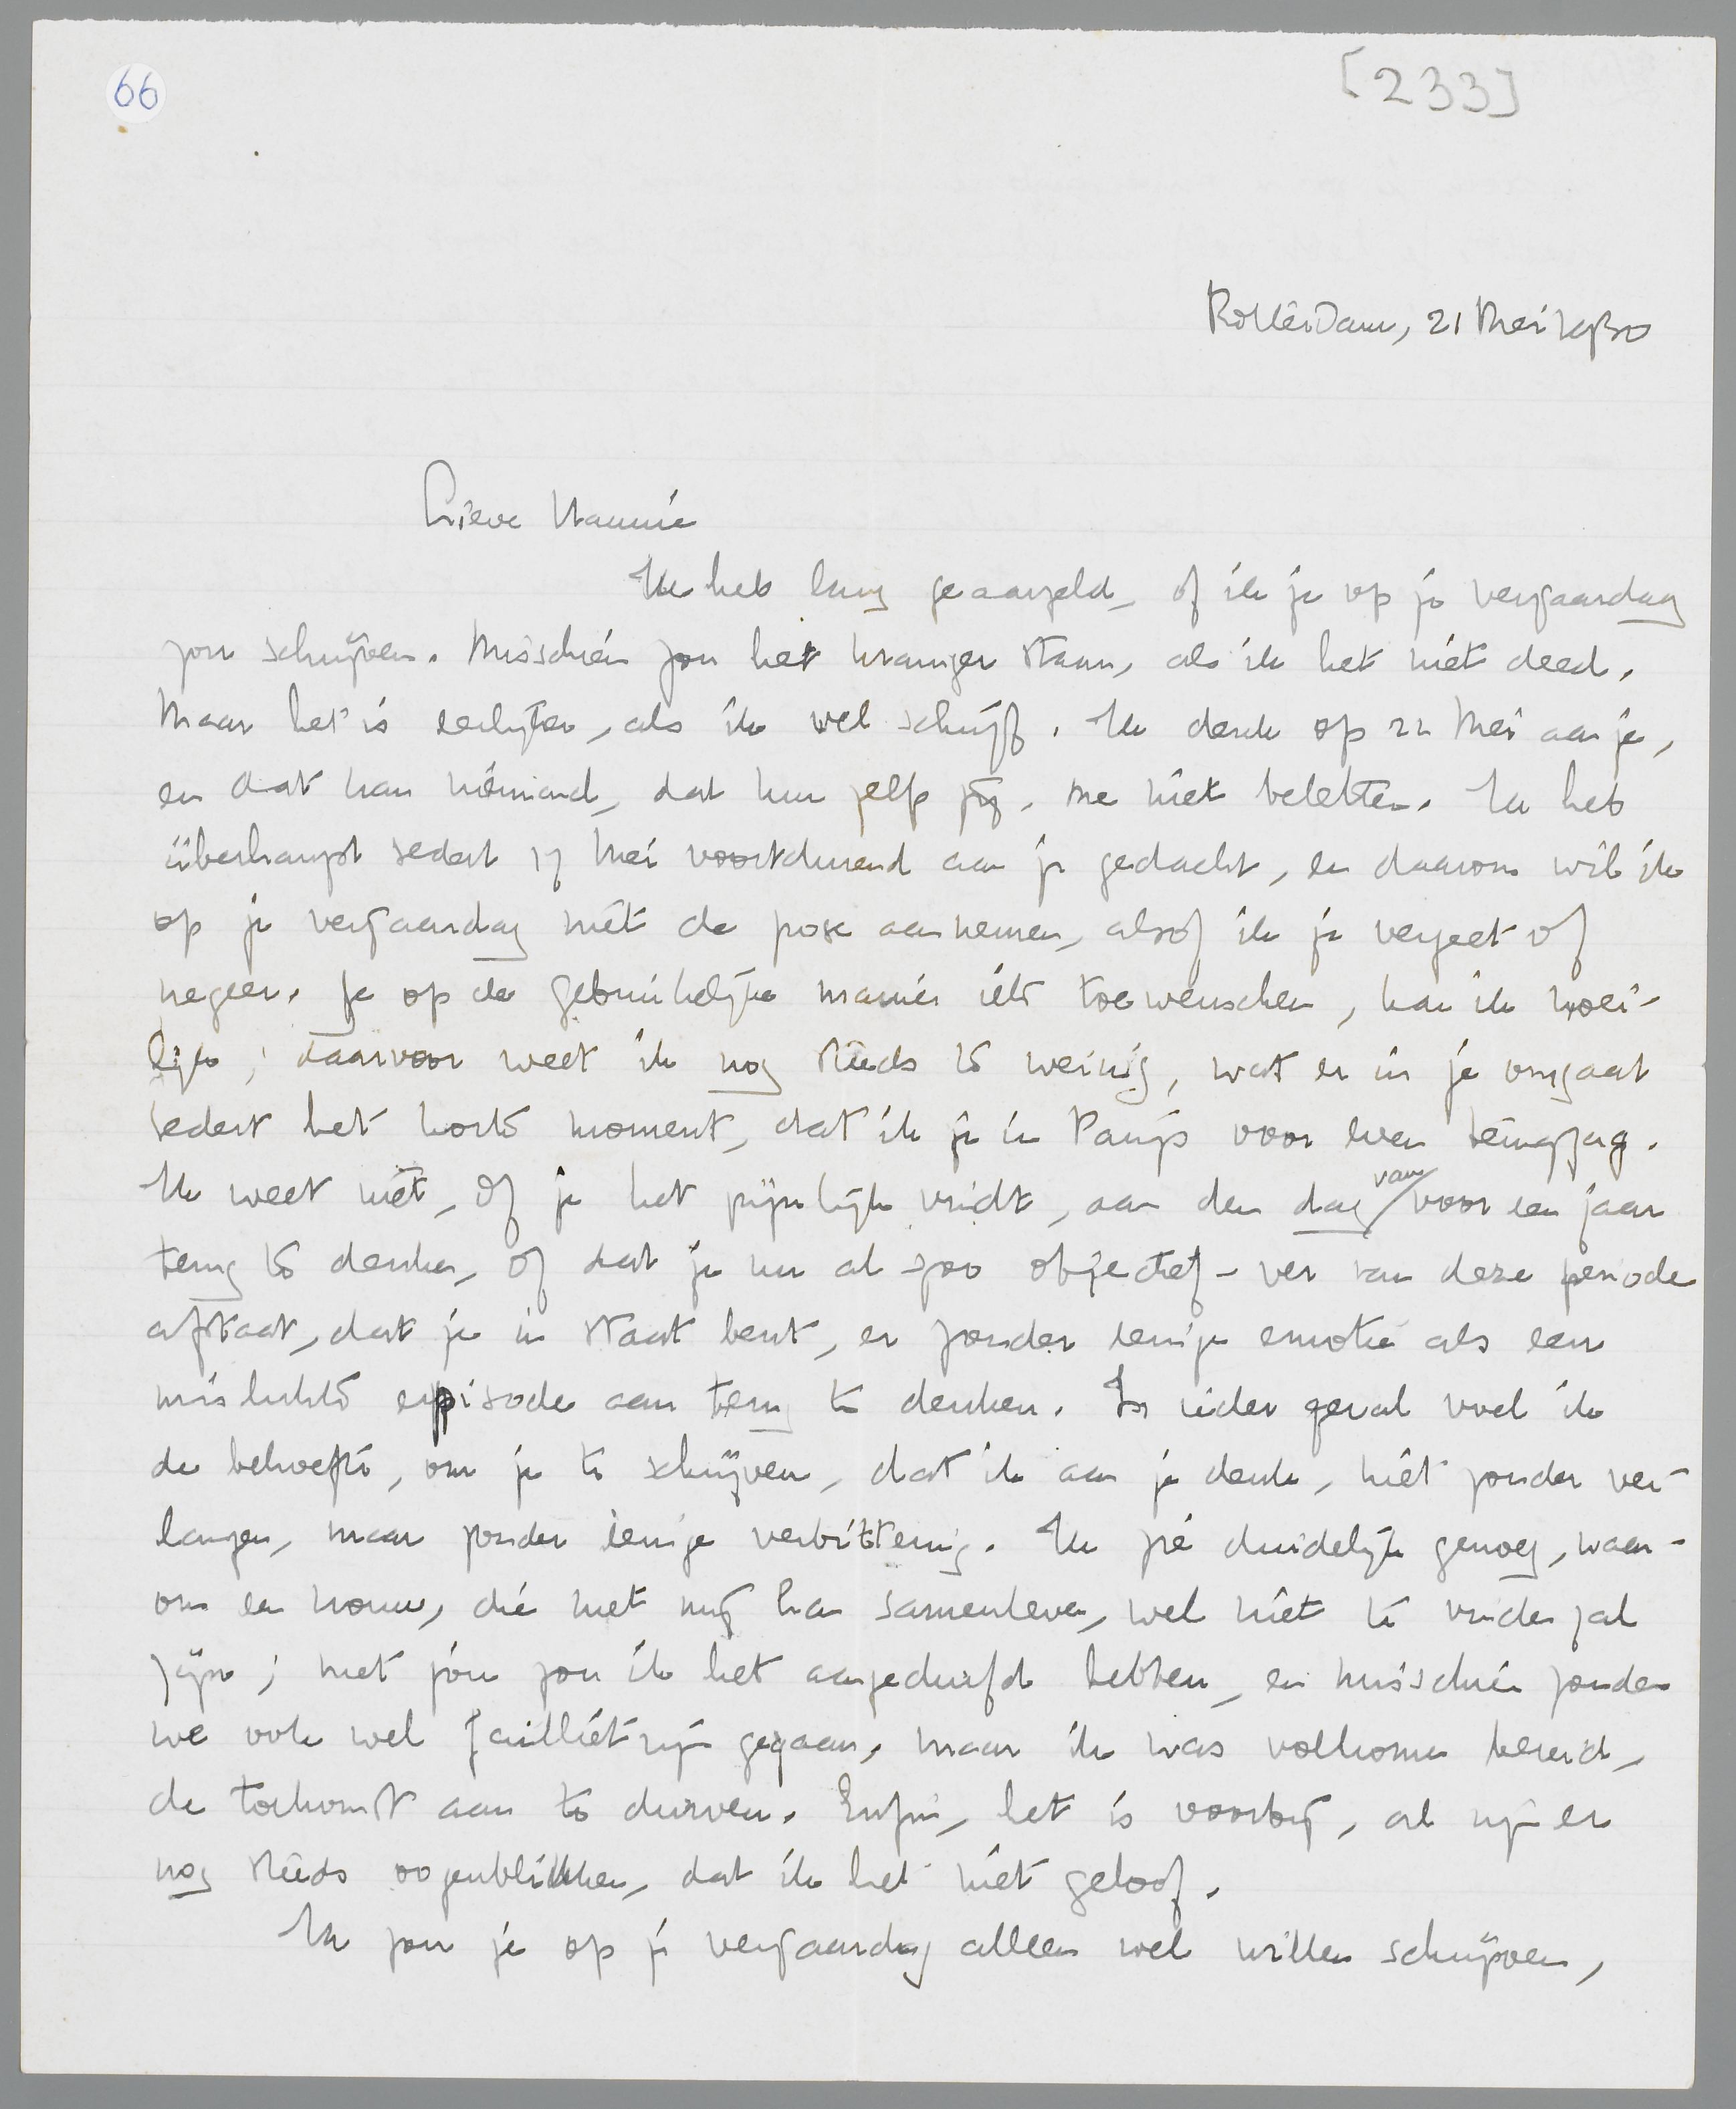 66
[233]
Rotterdam, 21 Mei 1930
Lieve Mannie
Ik heb lang geaarzeld, of ik je op je verjaardag
zou schrijven. Misschien zou het kraniger staan, als ik het niet deed.
Maar het is eerlijker, als ik wel schrijf. Ik denk op 22 Mei aan je,
en dat kan niemand, dat kun zelfs jij, me niet beletten. Ik heb
überhaupt sedert 17 Mei voortdurend aan je gedacht, en daarom wil ik
op je verjaardag niet de pose aannemen, alsof ik je vergeet of
negeer. Je op de gebruikelijke manier iets toewenschen, kan ik moei-
lijk; daarvoor weet ik nog steeds te weinig, wat er in je omgaat
sedert het korte moment, dat ik je in Parijs voor even terugzag.
Ik weet niet, of je het pijnlijk vindt, aan den dag van voor een jaar
terug te denken, of dat je nu al zoo objectief-ver van deze periode
afstaat, dat je in staat bent, er zonder eenige emotie als een
mislukte episode aan terug te denken. In ieder geval voel ik
de behoefte, om je te schrijven, dat ik aan je denk, niet zonder ver-
langen, maar zonder eenige verbittering. Ik zie duidelijk genoeg, waar-
om een vrouw, die met mij kan samenleven, wel niet te vinden zal
zijn; met jóu zou ik het aangedurfd hebben, en misschien zouden
we ook wel failliet zijn gegaan, maar ik was volkomen bereid,
de toekomst aan te durven. Enfin, het is voorbij, al zijn er
nog steeds oogenblikken, dat ik het niet geloof.
Ik zou je op je verjaardag alleen wel willen schrijven,